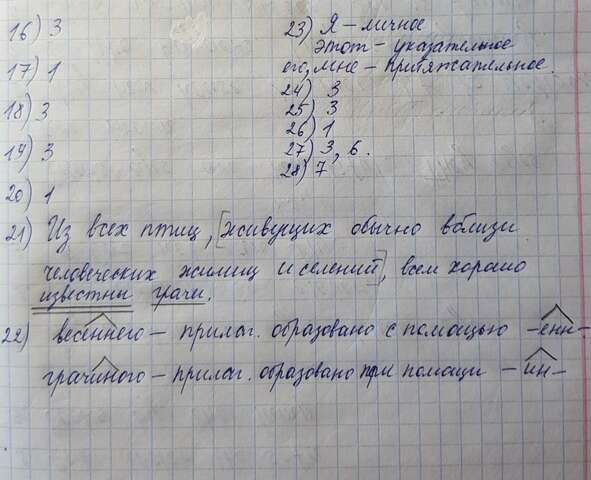 16) 3
17) 1
18) 3
19) 3
20) 1
23) Я – личное
этот – указательное
его, мне – притяжательное.
24) 3
25) 3
26) 1
27) 3, 6.
28) 7
21) Из всех птиц, [живущих обычно вблизи
человеческих жилищ и селений], всем хорошо
известны грачи.
22) весеннего – прилаг. образовано с помощью -енн-
грачиного – прилаг. образовано при помощи -ин-